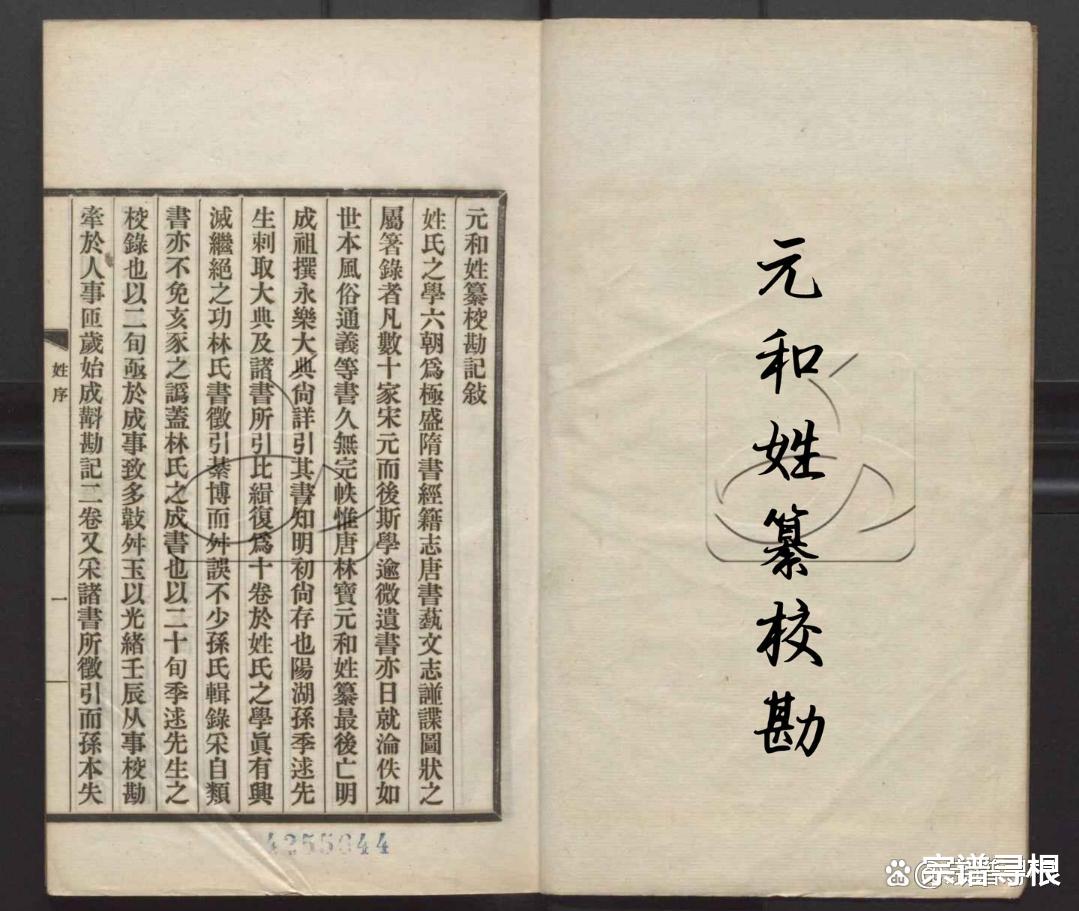 元和姓纂校勘
元和姓纂校勘記敍
姓氏之學六朝爲極盛隋書經籍志唐書蓺文志譜諜圖狀之
屬箸錄者凡數十家宋元而後斯學逾微遺書亦日就淪佚如
世本風俗通義等書久無完帙惟唐林寶元和姓纂最後亡明
成祖撰永樂大典尙詳引其書知明初尙存也陽湖孫季逑先
生刺取大典及諸書所引比緝復爲十卷於姓氏之學眞有興
滅繼絕之功林氏書徵引綦博而舛誤不少孫氏輯錄采自類
書亦不免亥豕之譌蓋林氏之成書也以二十旬季逑先生之
校錄也以二旬亟於成事致多㪇舛玉以光緒壬辰从事校勘
牽於人事匝歲始成斠勘記二卷又采諸書所徵引而孫本失
姓序
一
4255644
宗谱寻根